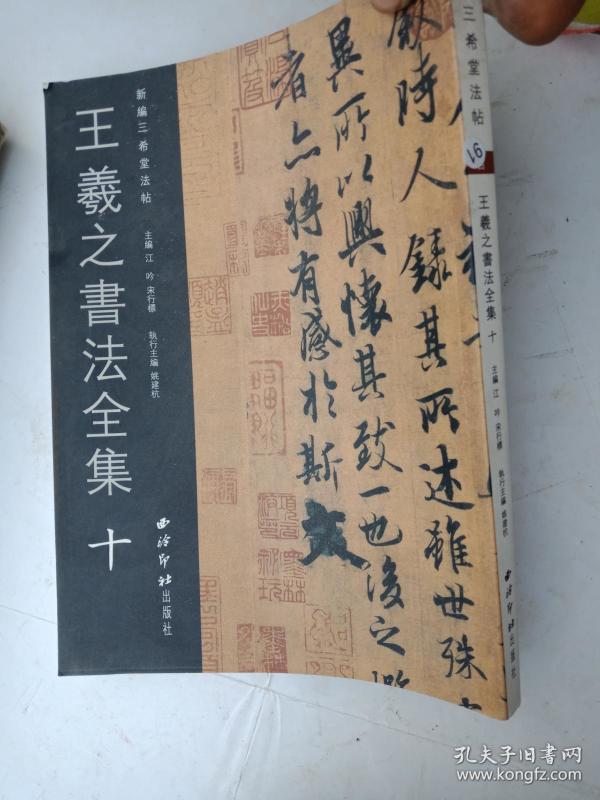 新編三希堂法帖
王羲之書法全集 十
主編 江 吟 宋行標 執行主編 姚建杭
西泠印社出版社
時人錄其所述雖世殊
異所以興懷其致一也後之
者亦將有感於斯文
三希堂法帖
16
王羲之書法全集 十
主編 江 吟 宋行標 執行主編 姚建杭
西泠印社出版社
孔夫子旧书网
www.kongfz.com